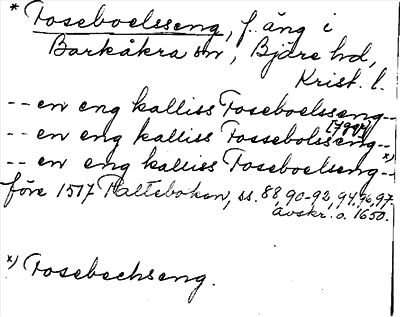 * Toseboelsseng, f. äng i
Barkåkra sn, Bjäre hd,
Krist. l.
-- en eng kalliss Toseboelsseng --
-- en eng kalliss Tossebolsseng --
-- en eng kalliss Toseboelseng -- x)
före 1517 Malteboken, ss. 88, 90-92, 94, 96, 97.
avskr. o. 1650.
x) Tosebechseng.